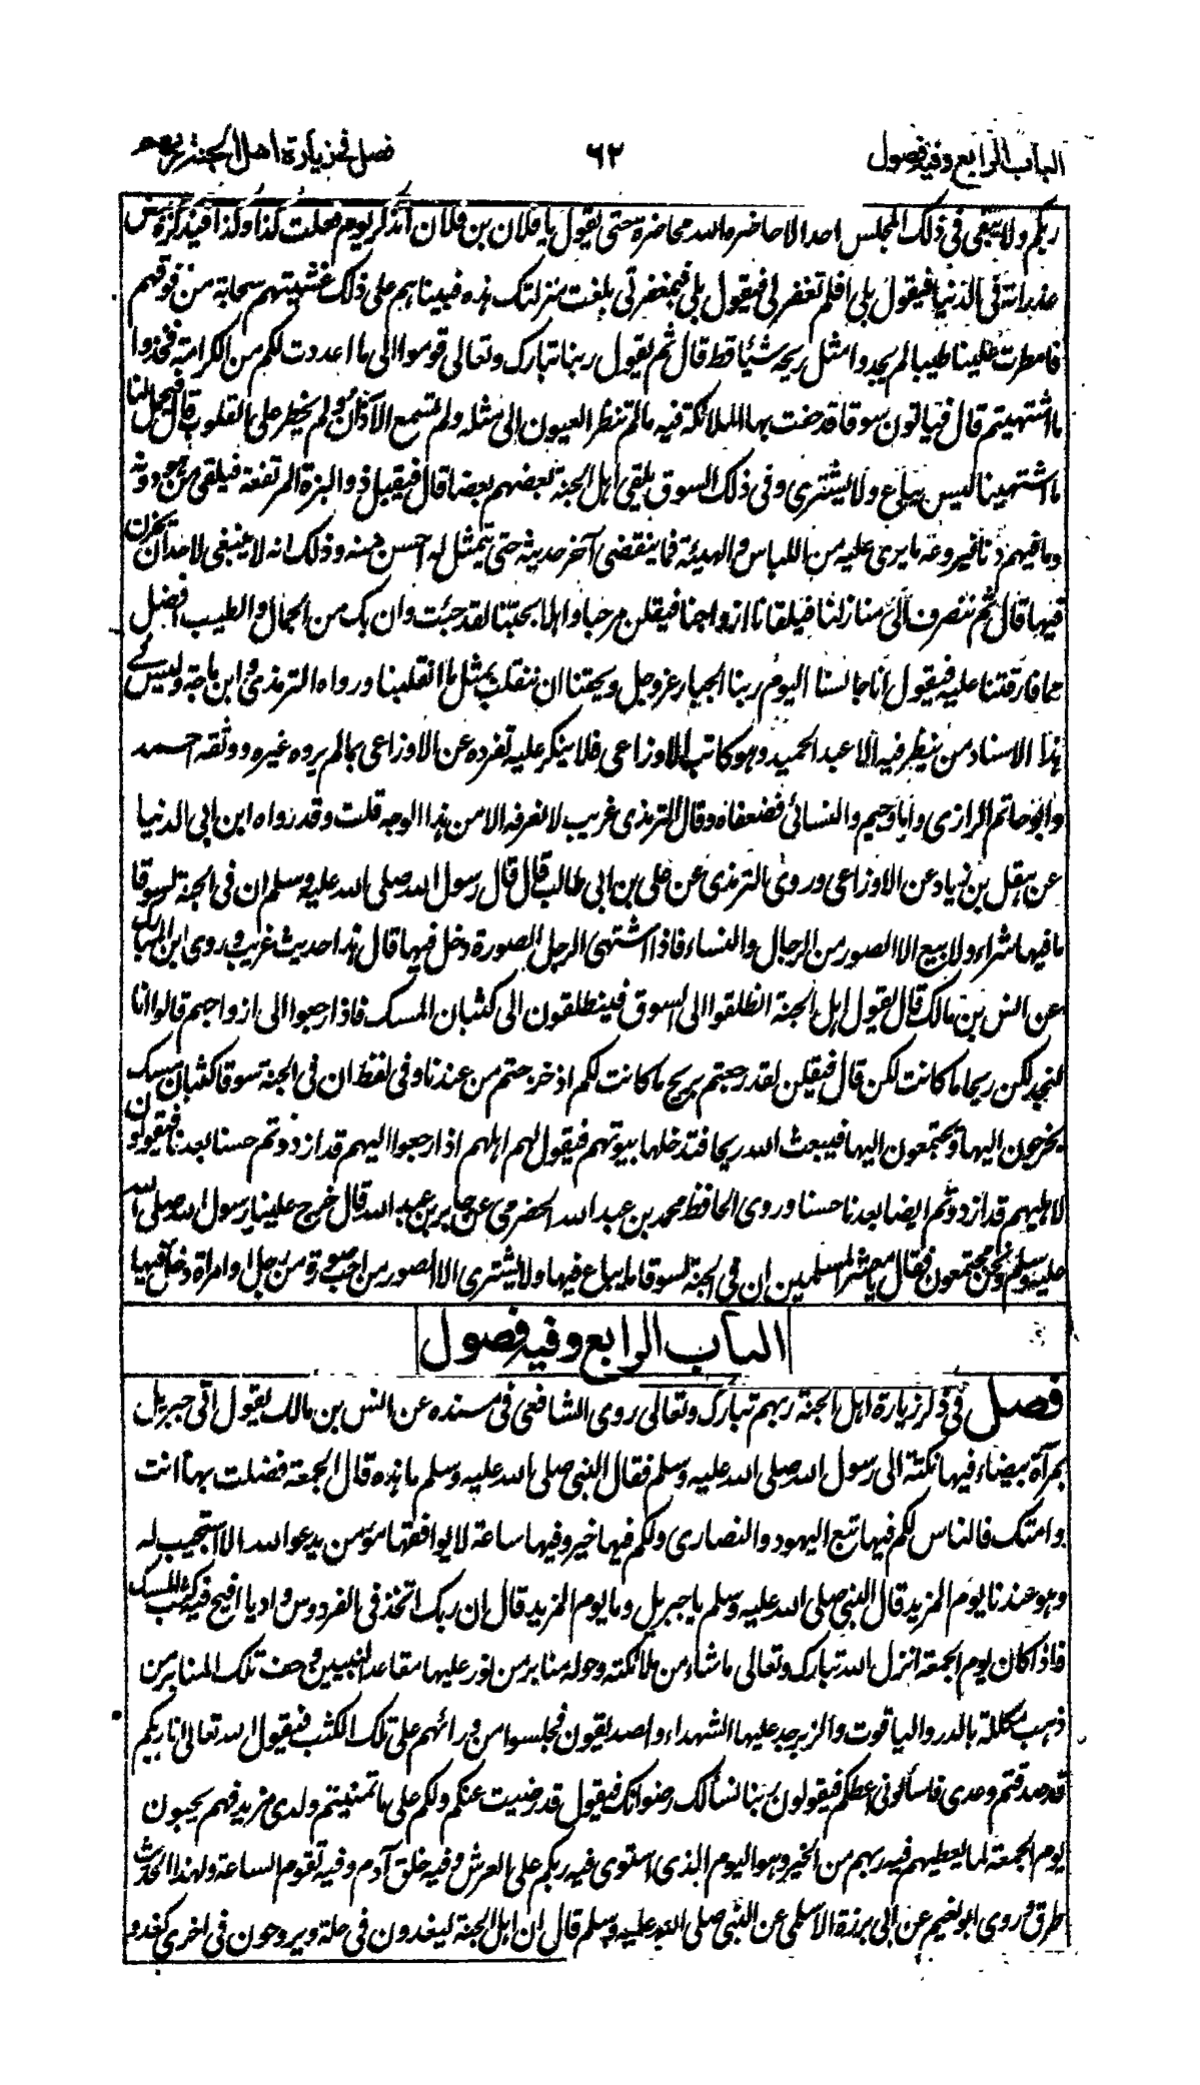 الباب الرابع وفيه فصول
٦٢
فصل في زيارة اهل الجنة ربهم
ربكم ولا يبقى في ذلك المجلس احد الا حاضره الله محاضرة حتى يقول يا فلان بن فلان اتذكر يوم فعلت كذا وكذا فيذكره بعض
غدراته في الدنيا فيقول بلى افلم تغفر لي فيقول بلى فبمغفرتي بلغت منزلتك هذه فبينما هم على ذلك غشيتهم سحابة من فوقهم
فامطرت عليهم طيبا لم يجدوا مثل ريحه شيئا قط قال ثم يقول ربنا تبارك وتعالى قوموا الى ما اعددت لكم من الكرامة فخذوا
ما اشتهيتم قال فيأتون سوقا قد حفت بها الملائكة فيه ما لم تنظر العيون الى مثله ولم تسمع الآذان ولم يخطر على القلوب قال فيحمل لنا
ما اشتهينا ليس يباع ولا يشترى وفي ذلك السوق يلقى اهل الجنة بعضهم بعضا قال فيقبل ذو البزة المرتفعة فيلقى من هو دونه
وما فيهم دنا فيروعه ما يرى عليه من اللباس والهيئة فما ينقضي آخر حديثه حتى يتمثل له احسن منه وذلك انه لا ينبغي لاحد ان يحزن
فيها قال ثم ننصرف الى منازلنا فيلقانا ازواجنا فيقلن مرحبا واهلا بحبنا لقد جئت وان بك من الجمال والطيب افضل
مما فارقتنا عليه فيقول انا جالسنا اليوم ربنا الجبار عز وجل ويحقنا ان ننقلب بمثل ما انقلبنا ورواه الترمذي وابن ماجة وليس في
هذا الاسناد من ينظر فيه الا عبد الحميد وهو كاتب الاوزاعي فلا ينكر عليه تفرده عن الاوزاعي بما لم يروه غيره ووثقه احمد
وابو حاتم الرازي واما دحيم والنسائي فضعفاه وقال الترمذي غريب لا نعرفه الا من هذا الوجه قلت وقد رواه ابن ابي الدنيا
عن هقل بن زياد عن الاوزاعي وروى الترمذي عن علي بن ابي طالب قال قال رسول الله صلى الله عليه وسلم ان في الجنة لسوقا
ما فيها شراء ولا بيع الا الصور من الرجال والنساء فاذا اشتهى الرجل الصورة دخل فيها قال هذا حديث غريب وروى ابن المبارك
عن انس بن مالك قال يقول اهل الجنة انطلقوا الى السوق فينطلقون الى كثبان المسك فاذا رجعوا الى ازواجهم قالوا انا
لنجد لكن ريحا ما كانت لكن قال فيقلن لقد رجعتم بريح ما كانت لكم اذ خرجتم من عندنا وفي لفظ ان في الجنة سوقا كثبان مسك
يخرجون اليها ويجتمعون اليها فيبعث الله ريحا فتدخلها بيوتهم فيقول لهم اهلهم اذا رجعوا اليهم قد ازددتم حسنا بعدنا فيقولون
لاهليهم قد ازددتم ايضا بعدنا حسنا وروى الحافظ محمد بن عبد الله الحضرمي عن جابر بن عبد الله قال خرج علينا رسول الله صلى الله
عليه وسلم ونحن مجتمعون فقال يا معشر المسلمين ان في الجنة لسوقا ما يباع فيها ولا يشترى الا الصور من احب صورة من رجل او امراة دخل فيها
الباب الرابع وفيه فصول
فصل في ذكر زيارة اهل الجنة ربهم تبارك وتعالى روى الشافعي في مسنده عن انس بن مالك يقول اتى جبريل
بمرآة بيضاء فيها نكتة الى رسول الله صلى الله عليه وسلم فقال النبي صلى الله عليه وسلم ما هذه قال الجمعة فضلت بها انت
وامتك فالناس لكم فيها تبع اليهود والنصارى ولكم فيها خير وفيها ساعة لا يوافقها مؤمن يدعو الله الا استجيب له
وهو عندنا يوم المزيد قال النبي صلى الله عليه وسلم يا جبريل وما يوم المزيد قال ان ربك اتخذ في الفردوس واديا افيح فيه كثب المسك
فاذا كان يوم الجمعة انزل الله تبارك وتعالى ما شاء من ملائكته وحوله منابر من نور عليها مقاعد النبيين وحف تلك المنابر من
ذهب مكللة بالدر والياقوت والزبرجد عليها الشهداء والصديقون فجلسوا من ورائهم على تلك الكثب فيقول الله تعالى انا ربكم
قد صدقتم وعدي فاسألوني اعطكم فيقولون ربنا نسألك رضوانك فيقول قد رضيت عنكم ولكم علي ما تمنيتم ولدي مزيد فهم يحبون
يوم الجمعة لما يعطيهم فيه ربهم من الخير وهو اليوم الذي استوى فيه ربكم على العرش وفيه خلق آدم وفيه تقوم الساعة ولهذا الحديث
طرق وروى ابو نعيم عن ابي برزة الاسلمي عن النبي صلى الله عليه وسلم قال ان اهل الجنة ليغدون في حلة ويروحون في اخرى كغدو